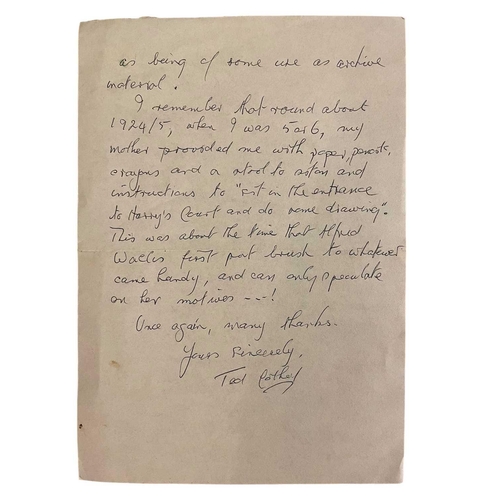 as being of some use as archive
material.
I remember that round about
1924/5, when I was 5 or 6, my
mother provided me with paper, pencils,
crayons and a stool to sit on and
instructions to "sit in the entrance
to Harry's Court and do some drawing".
This was about the time that Alfred
Wallis first put brush to whatever
came handy, and can only speculate
on her motives ---!
Once again, many thanks.
Yours Sincerely,
Ted